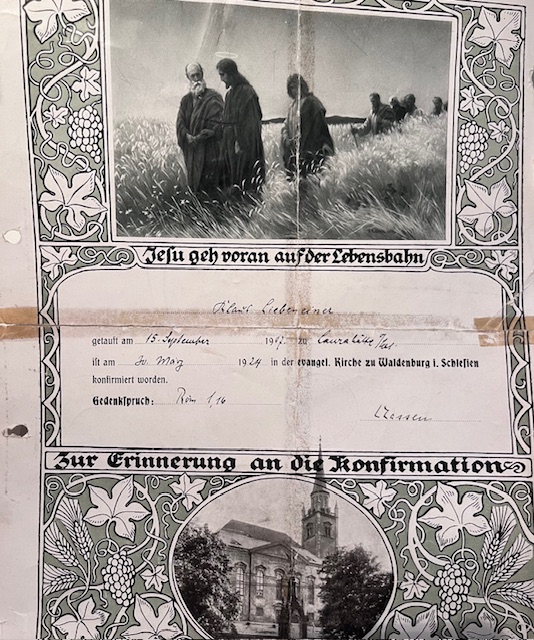 Jesu geh voran auf der Lebensbahn
Klaus Liebeneiner
getauft am 15. September 19 zu
ist am 30. März 1924 in der evangel. Kirche zu Waldenburg i. Schlesien
konfirmiert worden.
Gedenkspruch: Rom 1,16
Zur Erinnerung an die Konfirmation